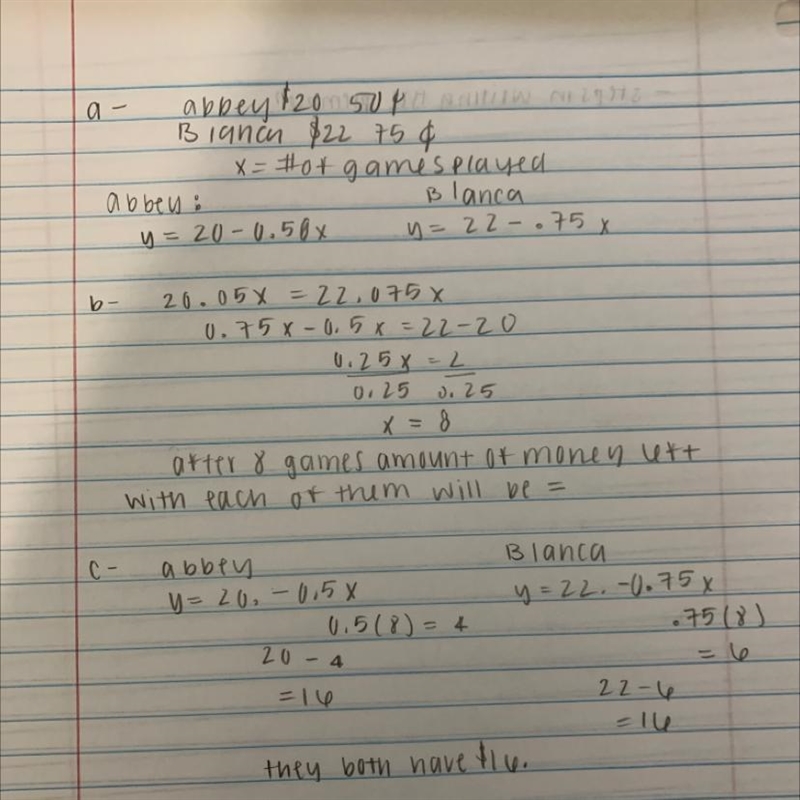 a - abbey $20 50¢
Blanca $22 75¢
x = # of games played
abbey: Blanca
y = 20 - 0.50x y = 22 - .75x
b- 20.05x = 22.075x
0.75x - 0.5x = 22-20
0.25x = 2
0.25 0.25
x = 8
after 8 games amount of money left
with each of them will be =
c- abbey Blanca
y = 20. - 0.5x y = 22. -0.75x
0.5(8) = 4 .75(8)
20 - 4 = 6
= 16 22 - 6
= 16
they both have $16.